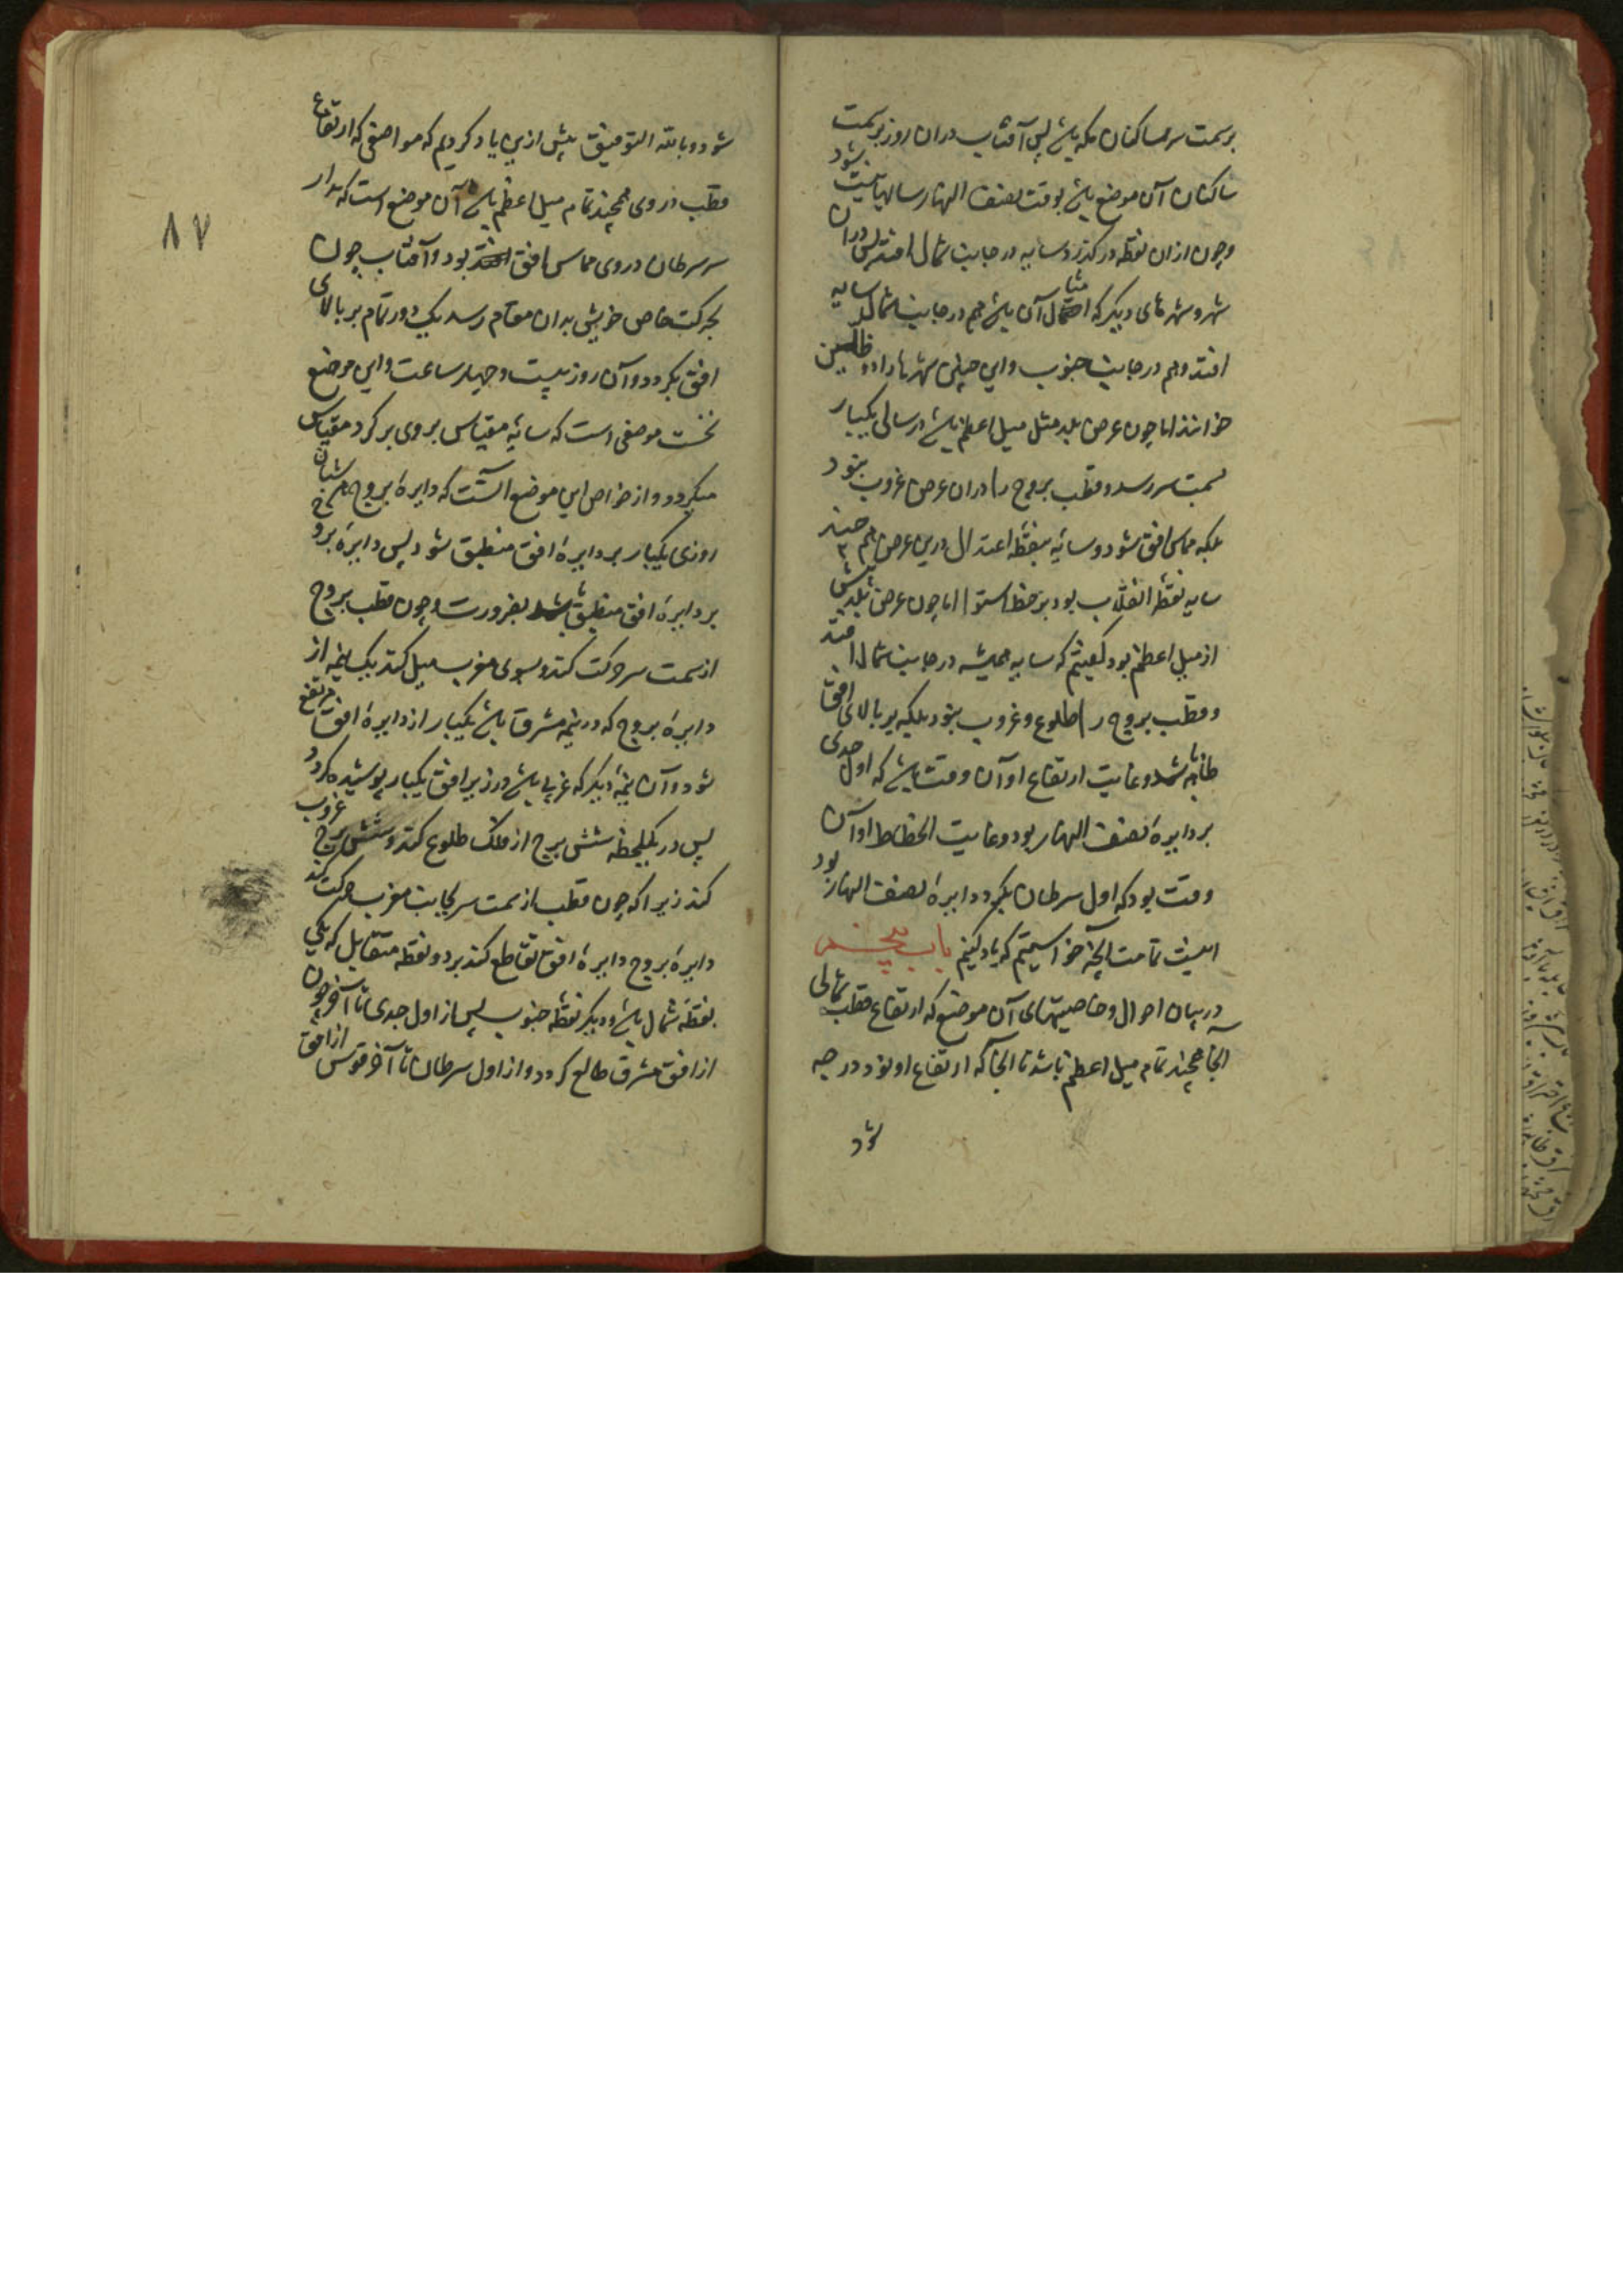 برسمت سر ساکنان مکه باشد پس آفتاب دران روز برسمت
ساکنان آن موضع باشد بوقت نصف النهار سایه نیست شود
وچون ازان نقطه درگذرد سایه در جانب شمال افتد پس دران
شهر و شهرهای دیگر که امثال آن باشد هم در جانب شمال سایه
افتد وهم در جانب جنوب واین چنین شهرها را ذو ظلین
خوانند اما چون عرض بلد مثل میل اعظم باشد در سالی یکبار
بسمت سر رسد وقطب بروج را دران عرض غروب نبود
بلکه مماس افق شود وسایهٔ نقطه اعتدال درین عرض هم چند
سایه نقطهٔ انقلاب بود بر خط استوا اما چون عرض بلد بیش
از میل اعظم بود گفتیم که سایه همیشه در جانب شمال افتد
وقطب بروج را طلوع وغروب نبود بلکه بر بالای افق
ظاهر باشد وغایت ارتفاع او آن وقت باشد که اول جدی
بر دایرهٔ نصف النهار بود وغایت انحطاط او آن
وقت بود که اول سرطان بگرد دایرهٔ نصف النهار بود
اینست تمامت آنچه خواستیم که یاد کنیم باب پنجم
در بیان احوال وخاصیتهای آن موضع که ارتفاع قطب شمالی
آنجا همچند تمام میل اعظم باشد تا آنجا که ارتفاع او نود درجه
شود
٨٧
شود وبالله التوفیق پیش ازین یاد کردیم که مواضعی که ارتفاع
قطب در وی همچند تمام میل اعظم باشد آن موضع است که مدار
سر سرطان در وی مماس افق بود وآفتاب چون
بحرکت خاص خویش بدان مقام رسد یک دور تمام بر بالای
افق بگردد وآن روز بیست وچهار ساعت واین موضع
نخست موضعی است که سایهٔ مقیاس بروی بر گرد مقیاس
میگردد واز خواص این موضع آنست که دایرهٔ بروج در شبان
روزی یکبار بر دایرهٔ افق منطبق شود پس دایرهٔ بروج
بر دایرهٔ افق منطبق باشد بضرورت وچون قطب بروج
از سمت سر حرکت کند وبسوی مغرب میل کند یک نیمه از
دایرهٔ بروج که در نیمه مشرق باشد یکبار از دایرهٔ افق مرتفع
شود وآن نیمهٔ دیگر که غربی باشد در زیر افق یکبار پوشیده گردد
پس در یک لحظه شش برج از فلک طلوع کند وشش برج غروب
کند زیرا که چون قطب از سمت سر بجانب مغرب حرکت کند
دایرهٔ بروج دایرهٔ افق تقاطع کند بر دو نقطه متقابل که یکی
نقطهٔ شمال باشد ودیگر نقطهٔ جنوب پس از اول جدی تا آخر جوزا
از افق مشرق طالع گردد واز اول سرطان تا آخر قوس از افق